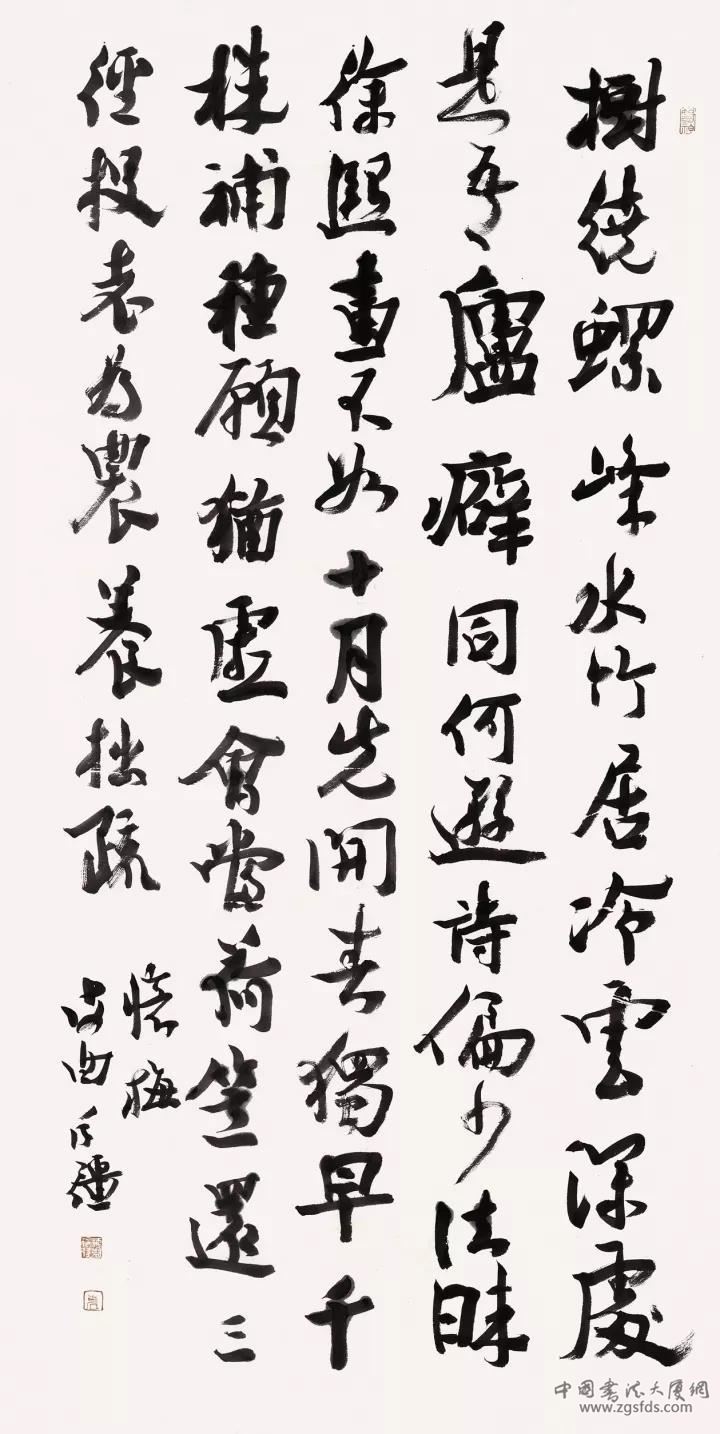 樹繞螺峰水竹居冷雲深處
是吾廬癖同何遜詩偏少法昧
徐熙畫不如十月先開春獨早千
株補種願猶虛會當荷笠還三
徑投老為農養拙疏
懷梅
中国書法大厦網
www.zgsfds.com